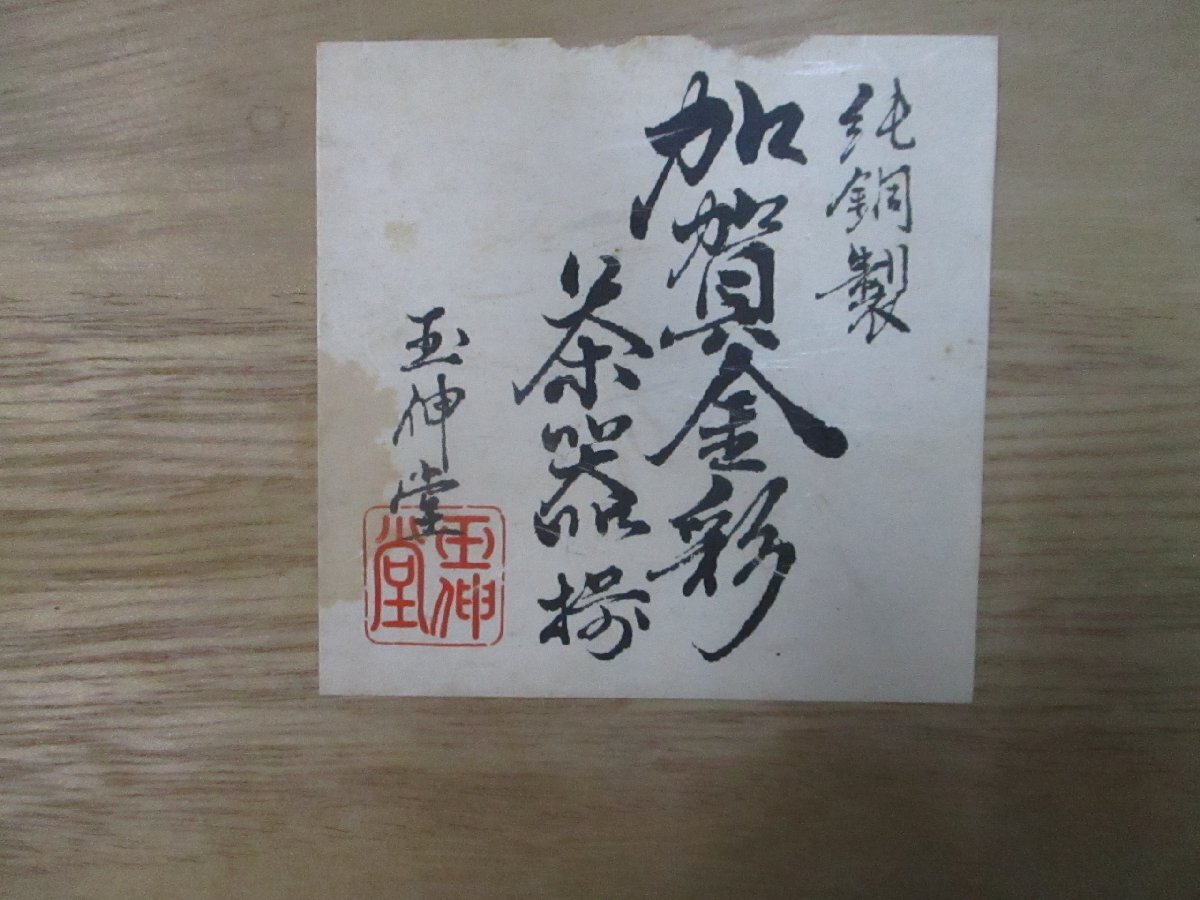 純銅製
加賀金彩
茶器揃
玉伸堂
玉伸堂